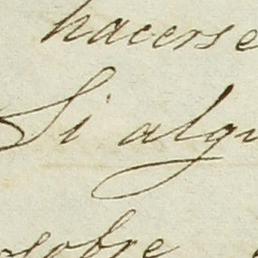 hacerse
Si algu
sobre